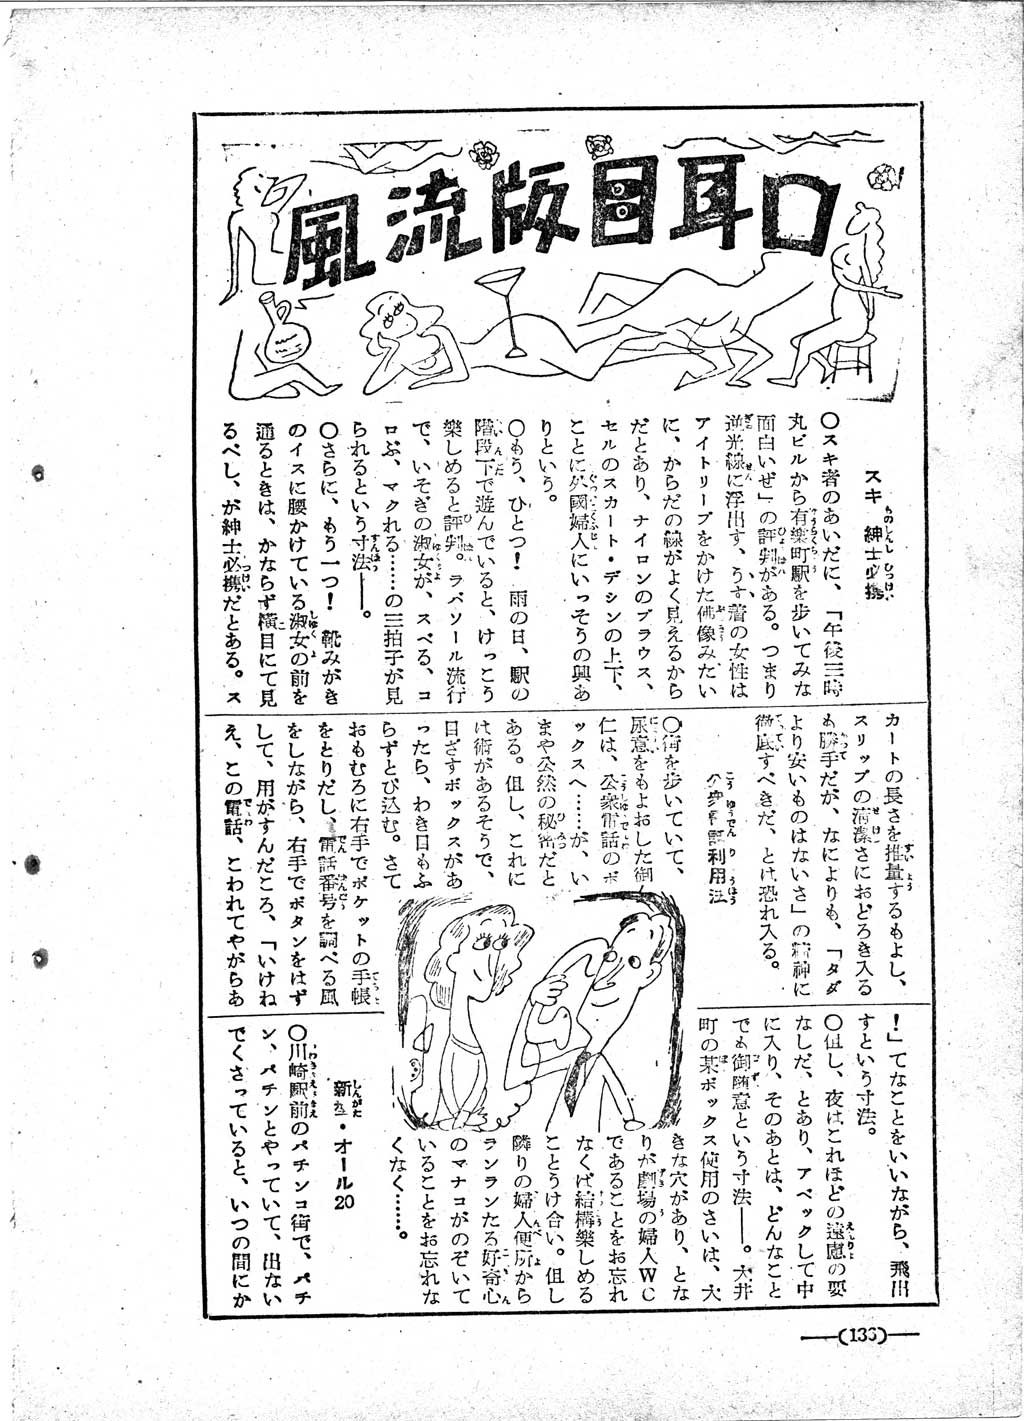 風流版目耳口
スキ紳士必携
〇スキ者のあいだに、「午後三時
丸ビルから有楽町駅を歩いてみな
面白いぜ」の評判がある。つまり
逆光線に浮出す、うす着の女性は
アイトリープをかけた佛像みたい
に、からだの線がよく見えるから
だとあり、ナイロンのブラウス、
セルのスカート・デシンの上下、
ことに外國婦人にいっそうの興あ
りという。
〇もう、ひとつ！　雨の日、駅の
階段下で遊んでいると、けっこう
樂しめると評判。ラバソール流行
で、いそぎの淑女が、スベる、コ
ロぶ、マクれる……の三拍子が見
られるという寸法――。
〇さらに、もう一つ！　靴みがき
のイスに腰かけている淑女の前を
通るときは、かならず横目にて見
るべし、が紳士必携だとある。ス
カートの長さを推量するもよし、
スリップの清潔さにおどろき入る
も勝手だが、なによりも、「タダ
より安いものはないさ」の精神に
徹底すべきだ、とけ恐れ入る。
公衆電話利用法
〇街を歩いていて、
尿意をもよおした御
仁は、公衆電話のボ
ックスへ……が、い
まや公然の秘密だと
ある。但し、これに
は術があるそうで、
目ざすボックスがあ
ったら、わき目もふ
らずとび込む。さて
おもむろに右手でポケットの手帳
をとりだし、電話番号を調べる風
をしながら、右手でボタンをはず
して、用がすんだころ、「いけね
え、この電話、こわれてやがらあ
！」てなことをいいながら、飛出
すという寸法。
〇但し、夜はこれほどの遠慮の要
なしだ、とあり、アベックして中
に入り、そのあとは、どんなこと
でも御随意という寸法――。大井
町の某ボックス使用のさいは、大
きな穴があり、とな
りが劇場の婦人WC
であることをお忘れ
なくば結構樂しめる
ことうけ合い。但し
隣りの婦人便所から
ランランたる好奇心
のマナコがのぞいて
いることをお忘れな
くなく……。
新型・オール20
〇川崎駅前のパチンコ街で、パチ
ン、パチンとやっていて、出ない
でくさっていると、いつの間にか
(136)